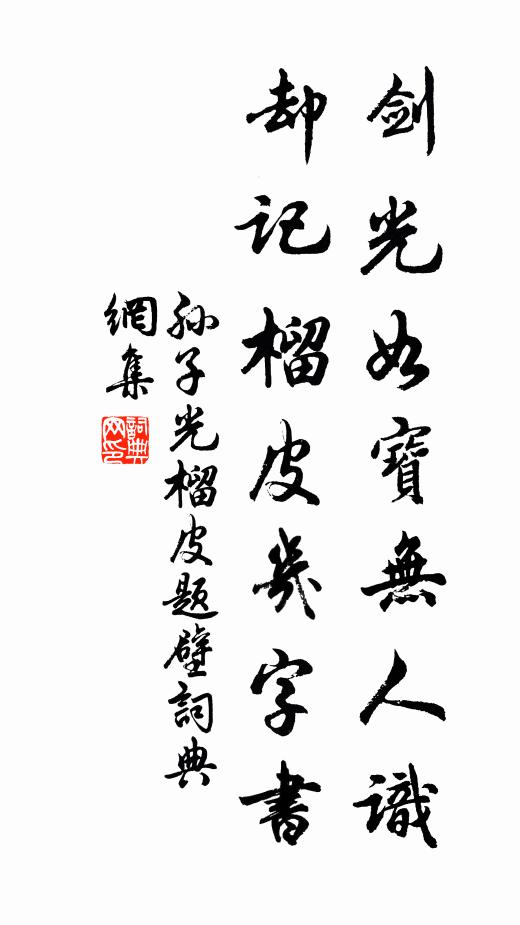 劍光如寶無人識
却記榴皮幾字書
孙子光榴皮题壁詞典
網集
詞典
网印